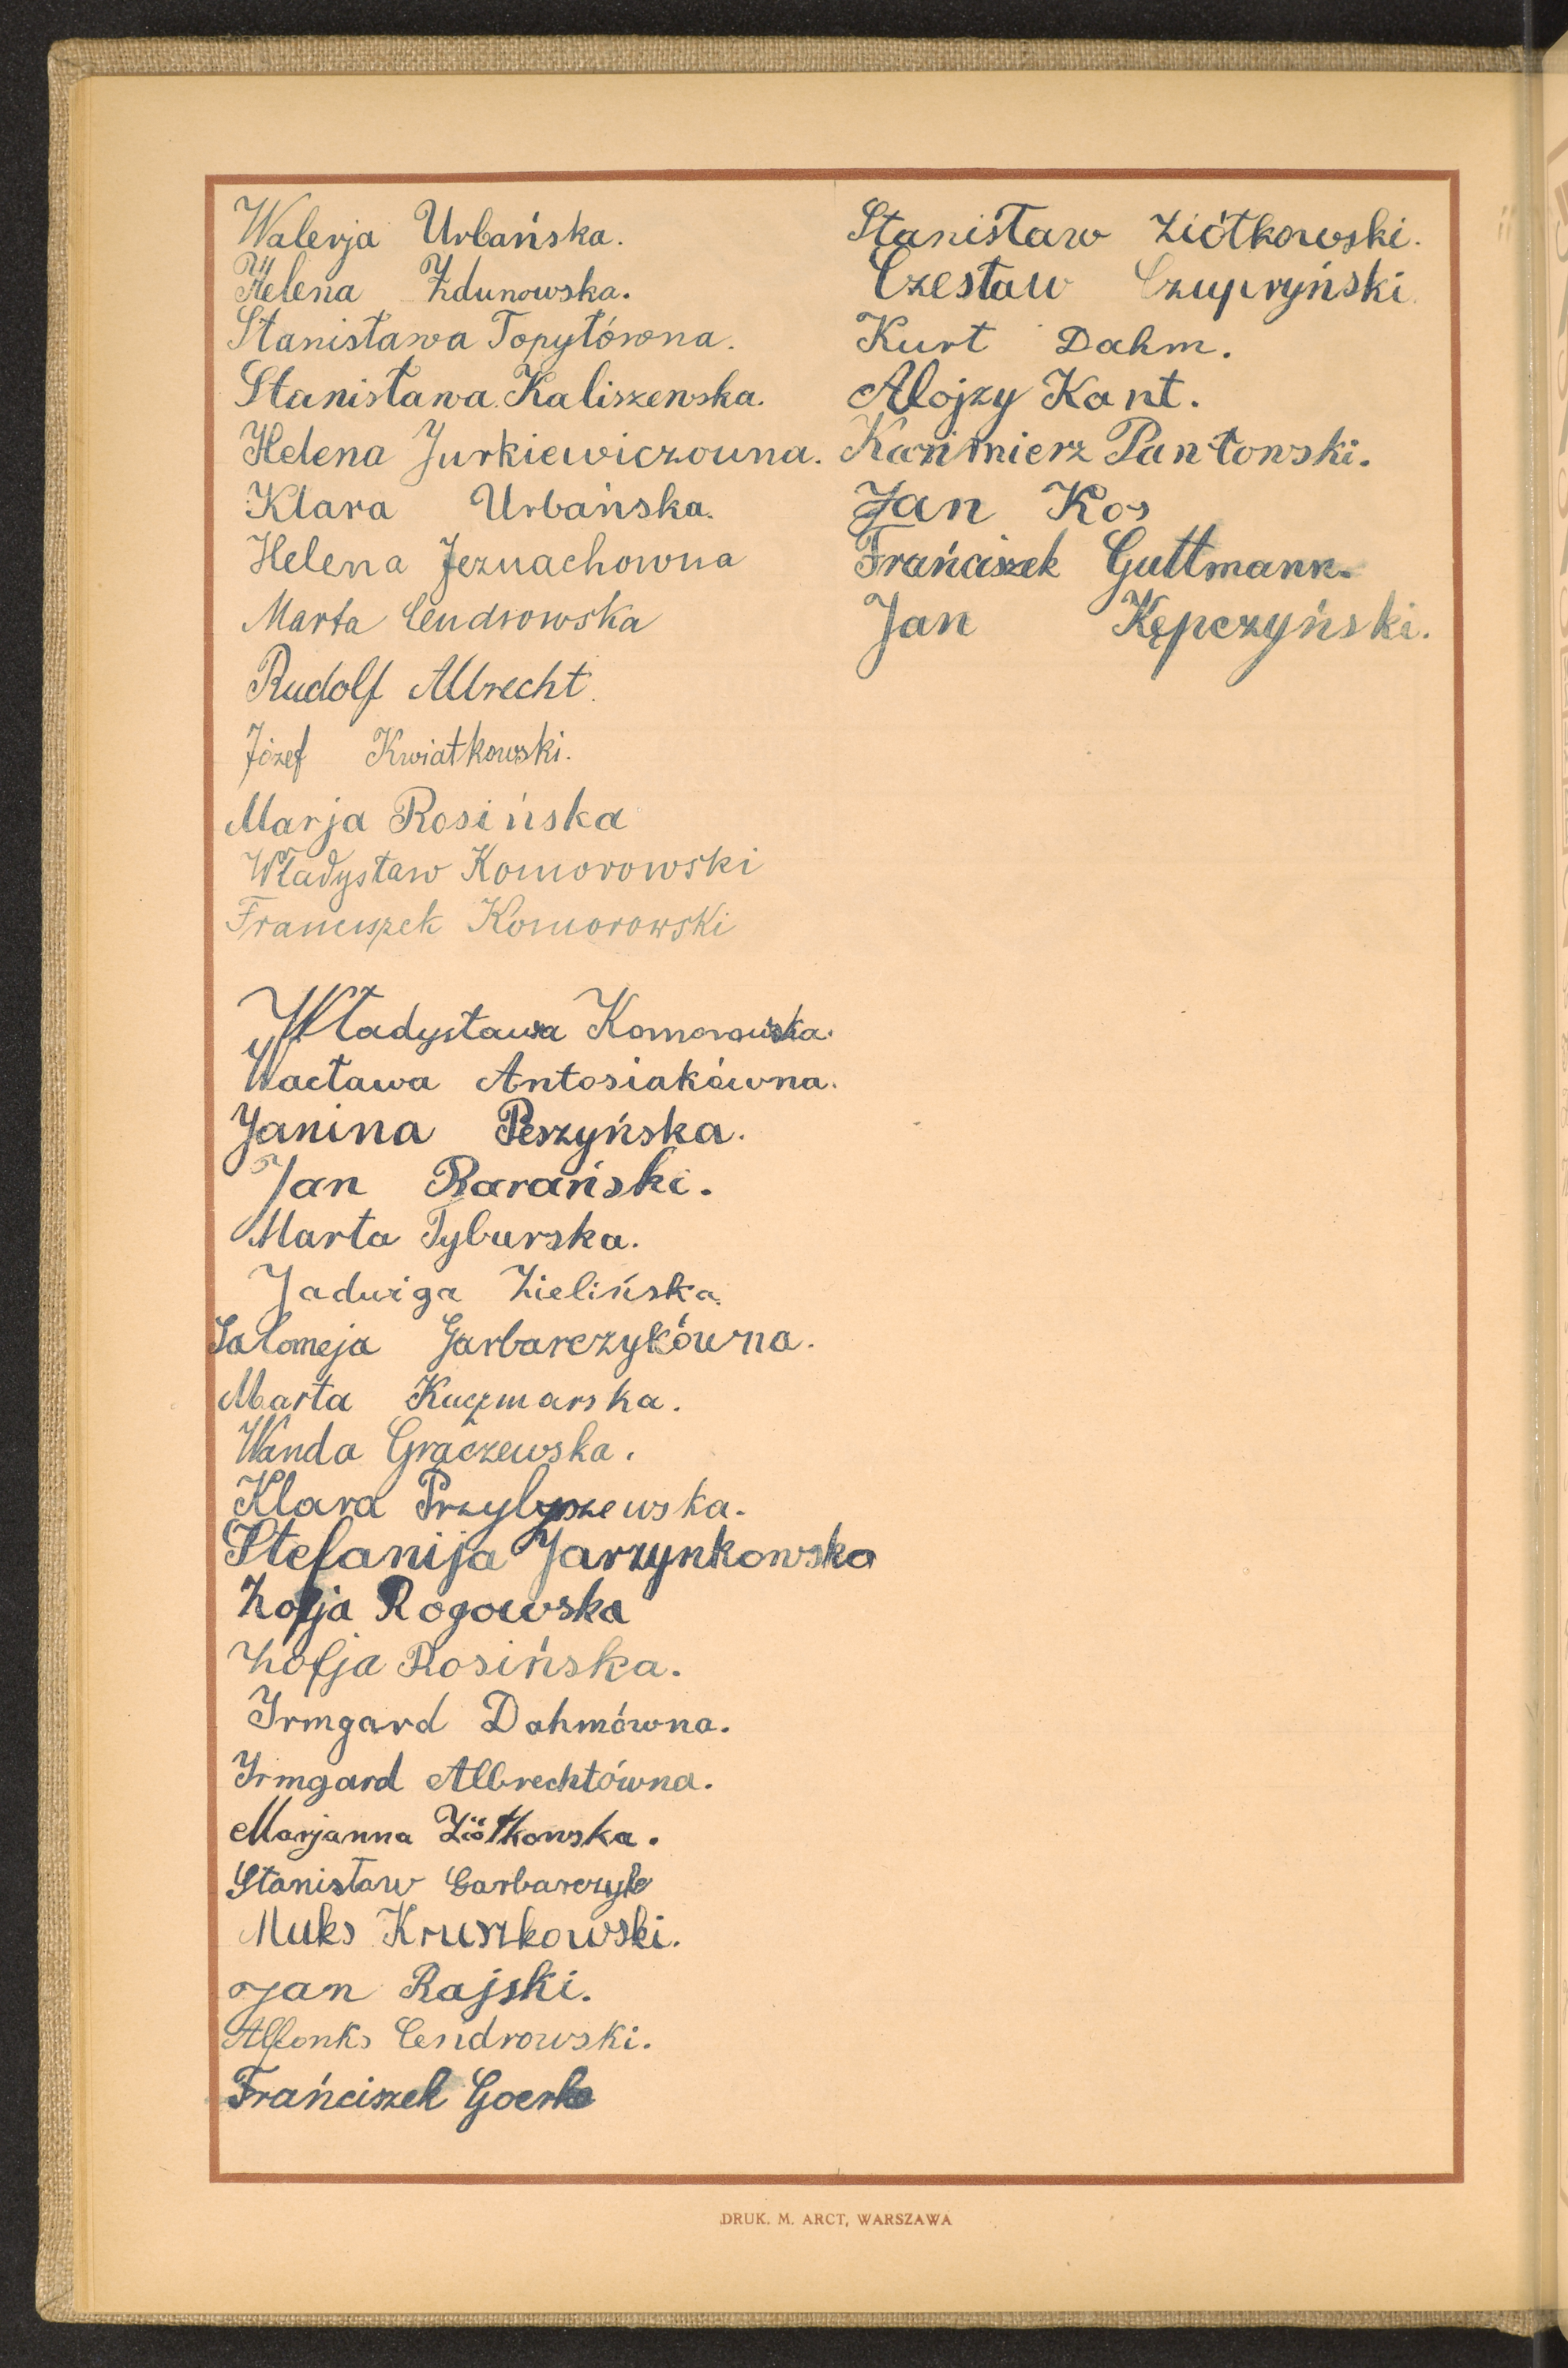 Walerja Urbańska.
Helena Zdunowska.
Stanisława Topyłówna.
Stanisława Kaliszewska.
Helena Jurkiewiczouna.
Klara Urbańska.
Helena Jeznachowna
Marta Cendrowska
Rudolf Albrecht.
Józef Kwiatkowski.
Marja Rosińska
Władysław Komorowski
Franciszek Komorowski
Władysława Komorowska.
Wacława Antosiakówna.
Janina Peszyńska.
Jan Barański.
Marta Tyburska.
Jadwiga Zielińska.
Salomeja Garbarczykówna.
Marta Kaczmarska.
Wanda Graczewska.
Klara Przybyszewska.
Stefanija Jarzynkowska
Zofja Rogowska
Zofja Rosińska.
Irmgard Dahmówna.
Irmgard Albrechtówna.
Marjanna Ziółkowska.
Stanisław Garbarczyk
Maks Kruszkowski.
Jan Rajski.
Alfonks Cendrowski.
Frańciszek Goerke
Stanisław Ziółkowski.
Czesław Czupryński.
Kurt Dahm.
Alojzy Kant.
Kazimierz Pantowski.
Jan Kos
Frańciszek Guttmann.
Jan Kępczyński.
DRUK. M. ARCT, WARSZAWA